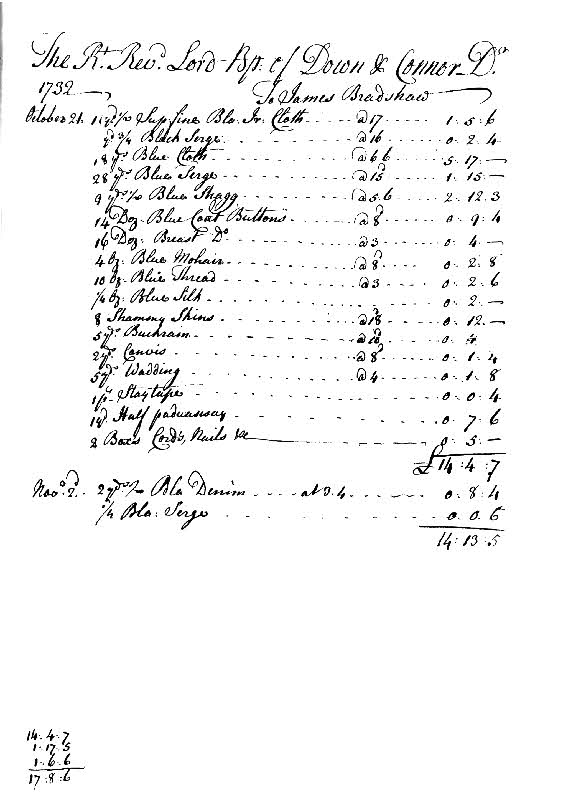 The Rt. Revd. Lord Bp. of Down & Connor Dr.
1732 To James Bradshaw
October 21. 1 yd ½ Supfine Bla. Ir. Cloth @ 17 1 . 5 . 6
yd ¾ Black Serge @ 16 0 . 2 . 4
18 yds Blue Cloth @ 6 6 5 . 17 . —
28 yds Blue Serge @ 15d 1 . 15 . —
9 yds ½ Blue Shagg @ 5.6 2 . 12 . 3
14 Doz. Blue Coat Buttons @ 8d 0 . 9 . 4
16 Doz. Breast Do @ 3 0 . 4 . —
4 oz. Blue Mohair @ 8d 0 . 2 . 8
10 oz. Blue Thread @ 3 0 . 2 . 6
¼ oz. Blue Silk 0 . 2 . —
8 Shammy Skins @ 18d 0 . 12 . —
5 yds Buckram @ 10d 0 . 4
2 yds Canvis @ 8d 0 . 1 . 4
5 yds Wadding @ 4 0 . 1 . 8
1 ps Staytape 0 . 0 . 4
1 yd Half paduasoay 0 . 7 . 6
2 Boxes Cords, Nails &c 0 . 5 . —
£ 14 . 4 . 7
Novr. 2d. 2 yds ½ Bla Denim at 3.4 0 . 8 . 4
¼ Bla: Serge 0 . 0 . 6
14 . 13 . 5
14 . 4 . 7
1 . 17 . 5
1 . 6 . 6
17 . 8 . 6